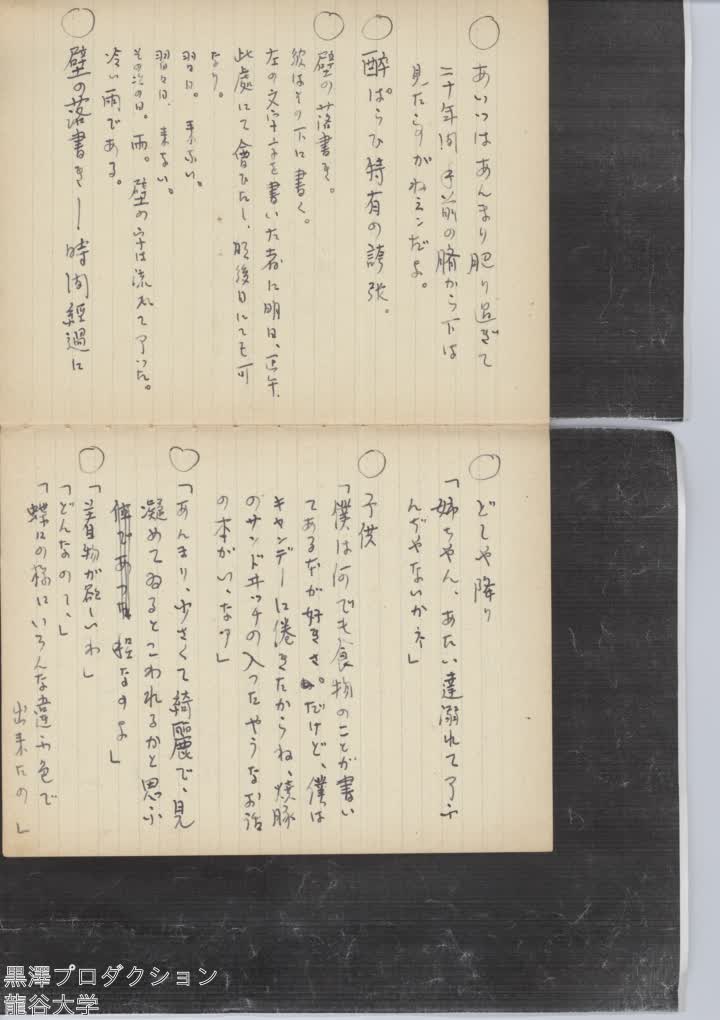 ○ あいつはあんまり肥り過ぎて
二十年間手前の臍から下は
見たものがねェンだよ。
○ 酔ぱらひ特有の誇張。
○ 壁の落書き。
彼はその下に書く。
左の文字を書いた者に明日、正午、
此處にて會ひたし、明後日にても可
なり。
翌日。来ない。
翌々日、来ない。
その次の日。雨。壁の字は流れて了った。
冷い雨である。
○ 壁の落書き―時間經過に
○ どしや降り
「姉ちやん、あたい達溺れて了ふ
んぢやないかネ」
○ 子供
「僕は何でも食物のことが書い
てある本が好きさ。だけど、僕は
キャンデーに倦きたからね、焼豚
のサンドヰッチの入ったやうなお話
の本がいゝなァ」
○ 「あんまり、小さくて綺麗で、見
凝めてゐるとこわれるかと思ふ
程なのよ」
○ 「着物が欲しいわ」
「どんなのて、」
「蝶々の様にいろんな違ふ色で
出来たの」
黒澤プロダクション
龍谷大学